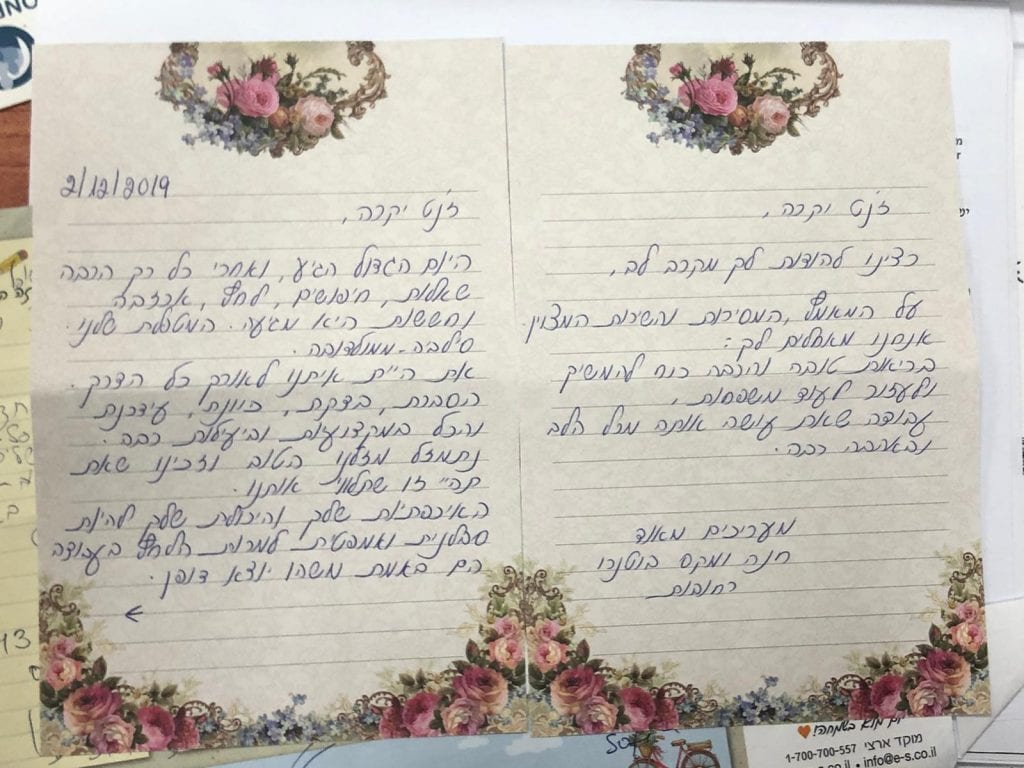 2/12/2019
ז'נט יקרה,
היום הגדול הגיע, ואחרי כל כך הרבה
שאלות, חיפושים, לחץ, אכזבה
וחששות היא מגיעה. המטפלת שלנו
סילבה-ממולדובה.
את היית איתנו לאורך כל הדרך.
הסברת, בדקת, כיוונת, עידכנת
והכל במקצועיות וביעילות רבה.
נתמזל מזלנו הטוב וזכינו שאת
תהיי זו שתלווי אותנו.
האיכפתיות שלך והיכולת שלך להיות
סבלנית ואמפטית למרות הלחץ בעבודה
הם באמת משהו יוצא דופן.
←
ז'נט יקרה,
רצינו להודות לך מקרב לב,
על המאמץ, המסירות והשירות המצוין.
אנחנו מאחלים לך:
בריאות טובה והרבה כוח להמשיך
ולעזור לעוד משפחות,
עבודה שאת עושה אותה מכל הלב
ובאהבה רבה.
מעריכים מאוד
חנה ומקס בוטנרו
רחובות
מוקד ארצי 1-700-700-557
info@e-s.co.il